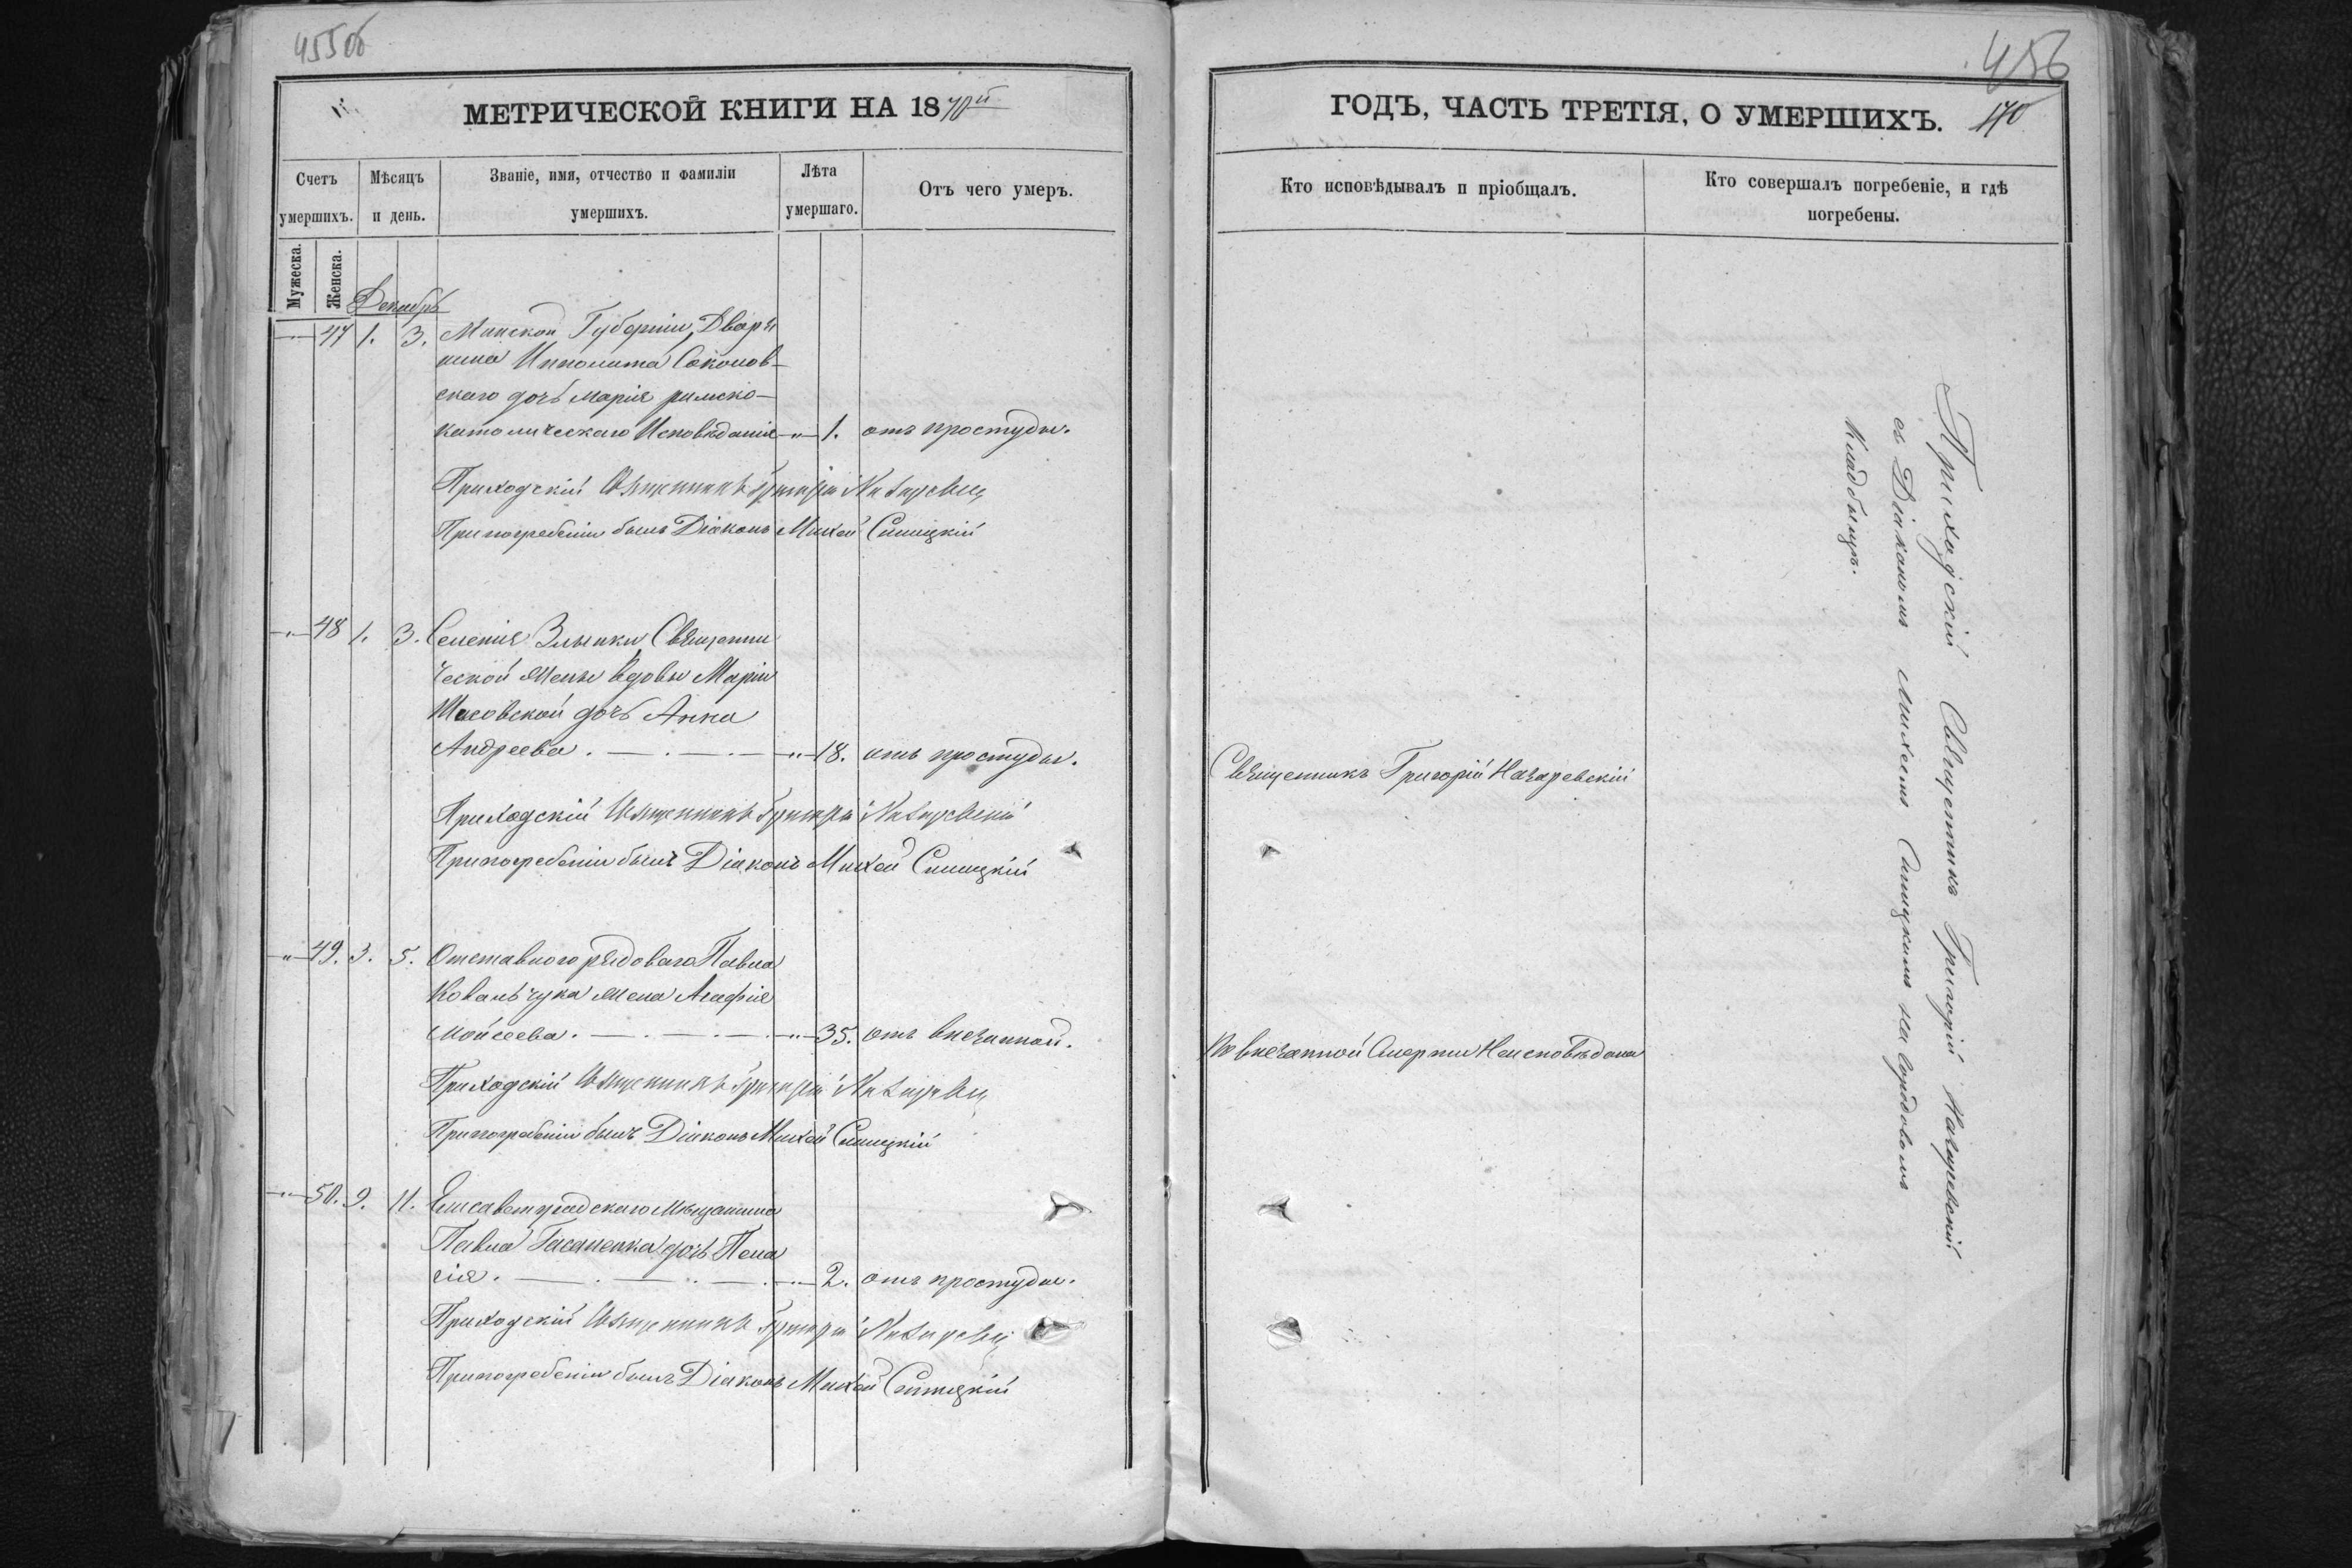 455об
МЕТРИЧЕСКОЙ КНИГИ НА 1870й
Счетъ умершихъ.
Мѣсяцъ и день.
Званіе, имя, отчество и фамиліи умершихъ.
Лѣта умершаго.
Отъ чего умеръ.
Мужеска.
Женска.
Декабрь
47 1. 3. Минской Губерніи, Дворя
нина Ипполита Соконов-
скаго дочь Марія римско-
католическаго Исповѣданія 1. отъ простуды.
Приходскій Священникъ Григорій
При погребеніи былъ Діаконъ Михей Синицкій
48 1. 3. Селенія Злынки, Священни
ческой жены вдовы Маріи
дочь Анна
Андреева. 18. отъ простуды.
Приходскій Священникъ Григорій Назаревскій
При погребеніи былъ Діаконъ Михей Синицкій
49. 3. 5. Отставного рядоваго Павла
Ковальчука жена Агафія
Мойсеева. 35. отъ внезапной.
Приходскій Священникъ Григорій
При погребеніи былъ Діаконъ Михей Синицкій
50. 9. 11. Елисаветградскаго мѣщанина
Павла Гасаненка дочь Пела
гія. 2. отъ простуды.
Приходскій Священникъ Григорій
При погребеніи былъ Діаконъ Михей Синицкій
456
ГОДЪ, ЧАСТЬ ТРЕТІЯ, О УМЕРШИХЪ. 170
Кто исповѣдывалъ и пріобщалъ.
Кто совершалъ погребеніе, и гдѣ погребены.
Священникъ Григорій Назаревскій
По внезапной Смерти Неисповѣдана
Приходскій Священникъ Григорій Назаревскій
съ Діакономъ Михеемъ Синицкимъ на
Кладбищѣ.